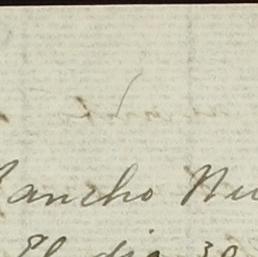 Rancho Nu
El dia 30